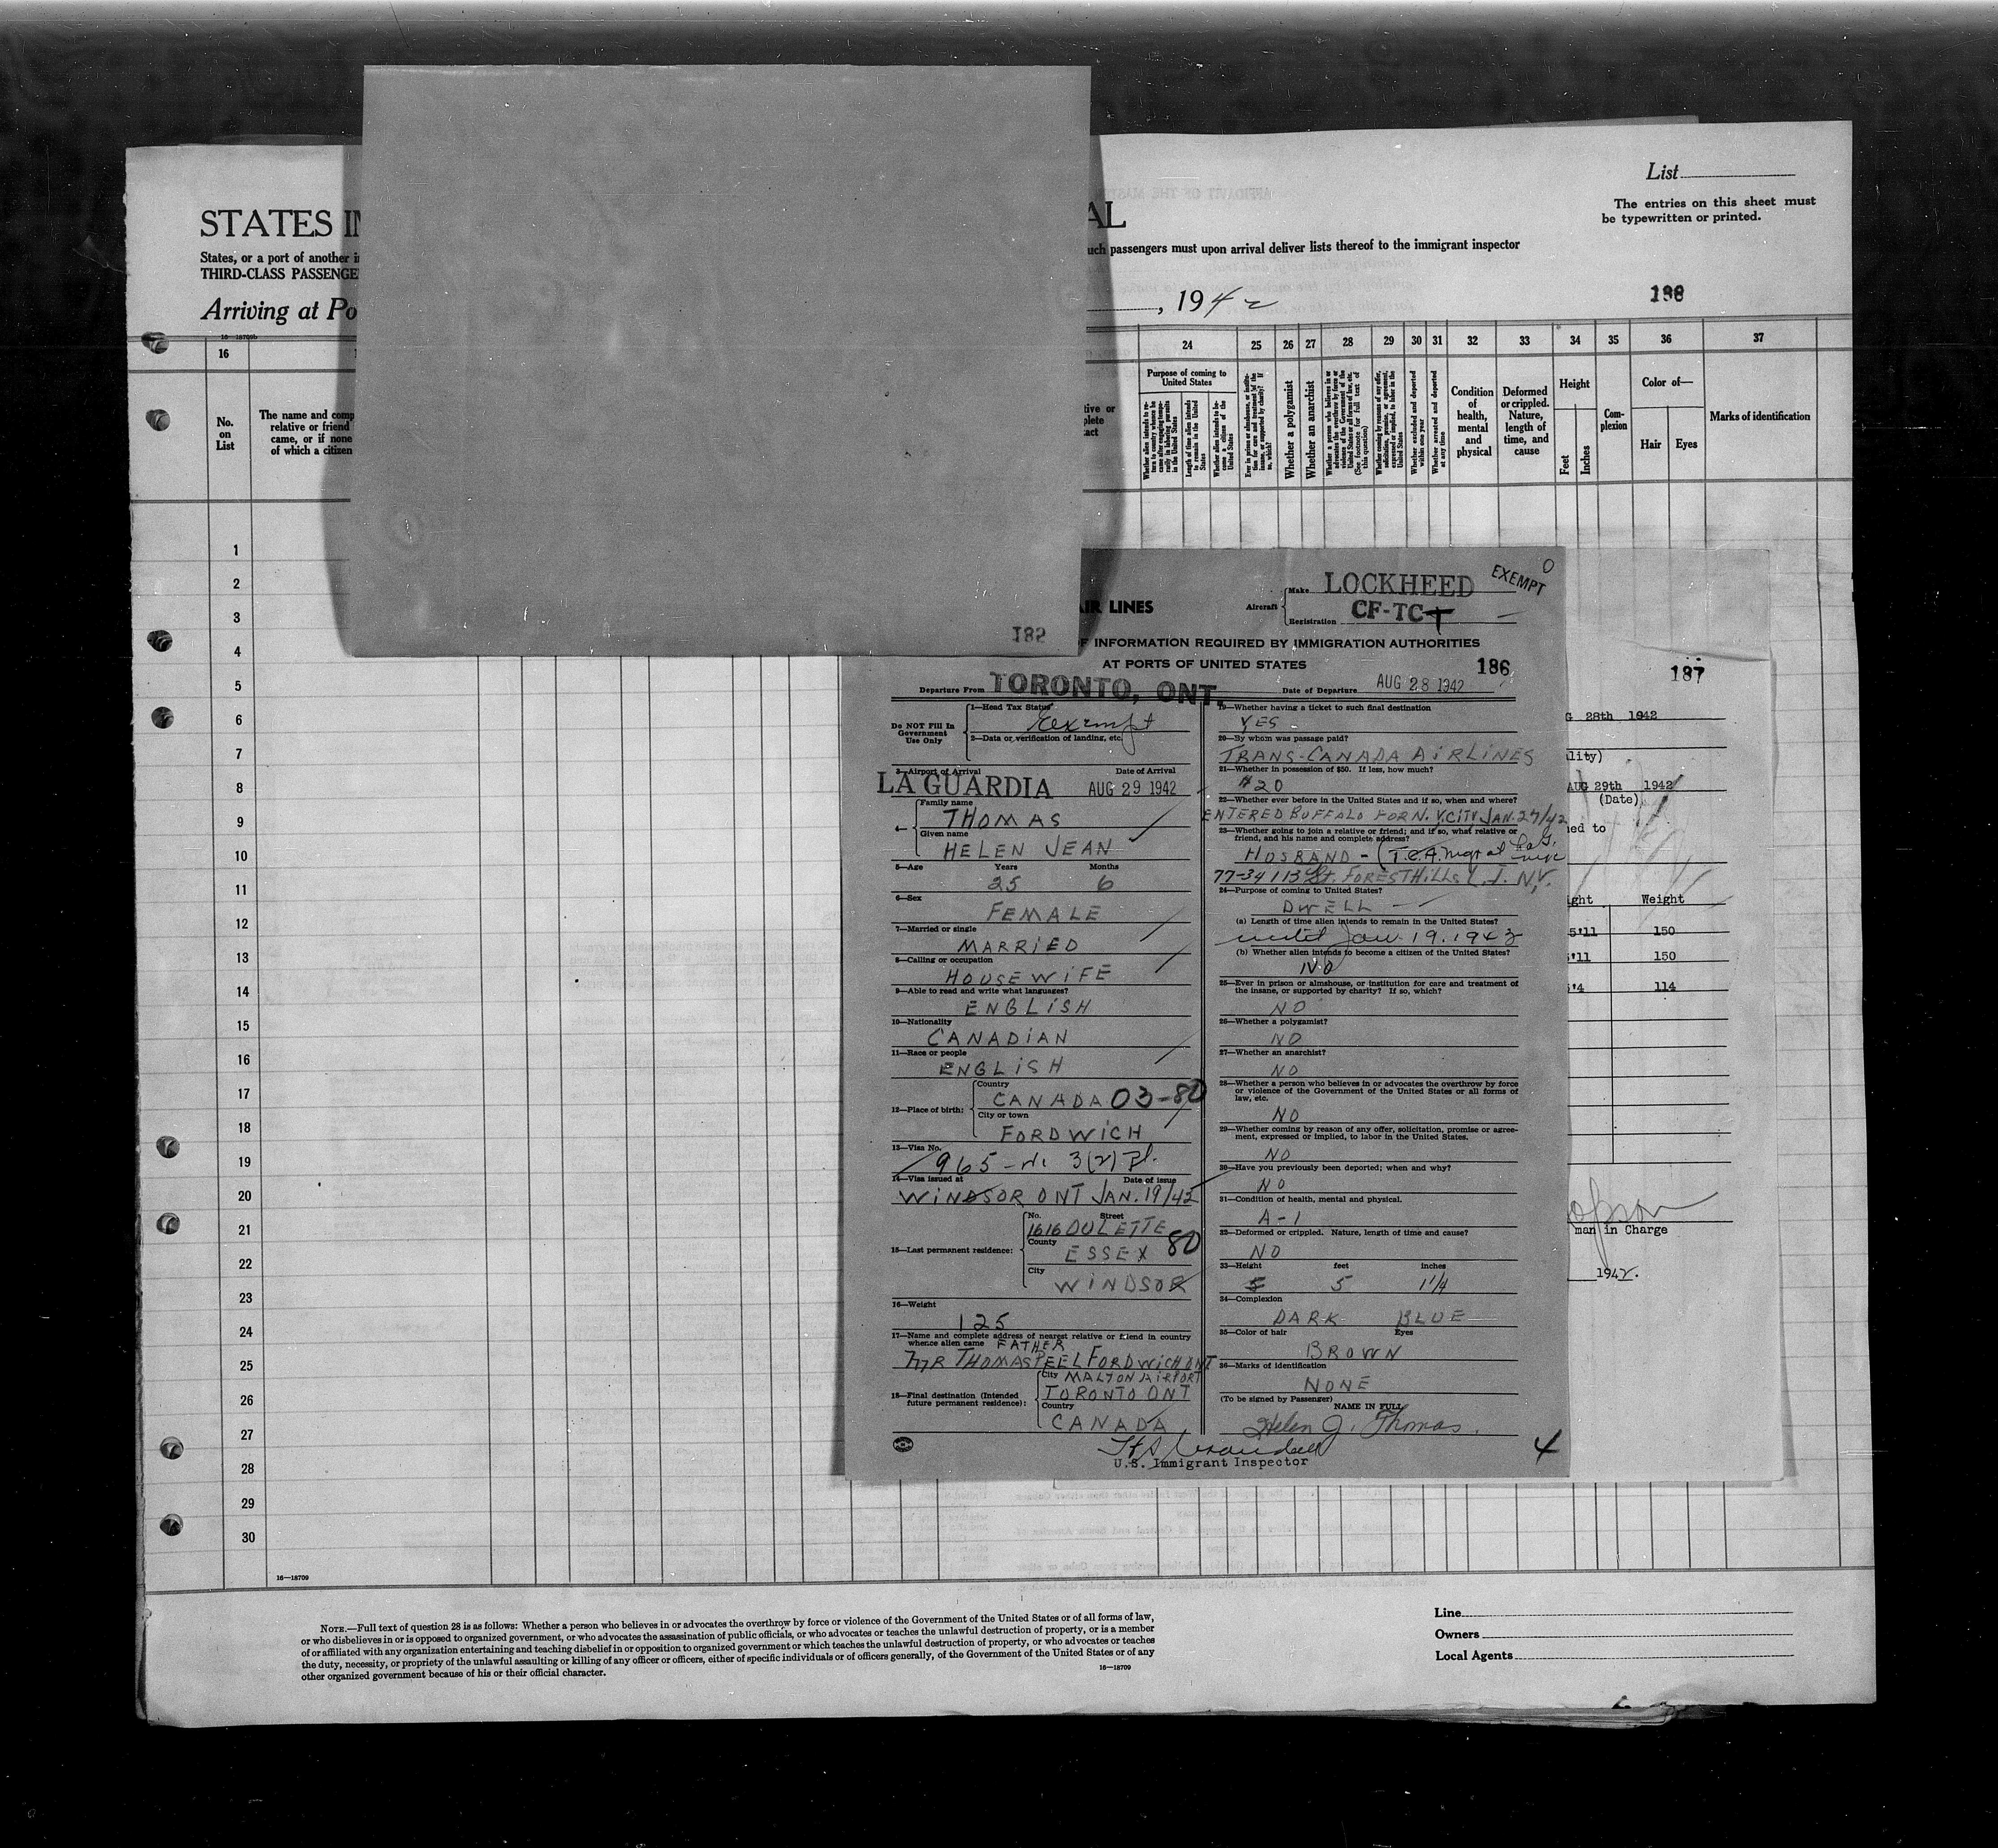 List
The entries on this sheet must
be typewritten or printed.
STATES
AL
States, or a port of another
such passengers must upon arrival deliver lists thereof to the immigrant inspector
THIRD-CLASS
Arriving at
, 1942
16
24 25 26 27 28 29 30 31 32 33 34 35 36 37
No.
on
List
The name and
relative or friend
came, or if none
of which a citizen
Purpose of coming to
United States
Whether a polygamist
Whether an anarchist
Condition
of
health,
mental
and
physical
Deformed
or crippled.
Nature,
length of
time, and
cause
Height
Feet
Inches
Com-
plexion
Color of—
Hair
Eyes
Marks of identification
1
2
3
4
5
6
7
8
9
10
11
12
13
14
15
16
17
18
19
20
21
22
23
24
25
26
27
28
29
30
16—18709
182
AIR LINES
Aircraft
Make LOCKHEED
Registration CF-TCT
EXEMPT
OF INFORMATION REQUIRED BY IMMIGRATION AUTHORITIES
AT PORTS OF UNITED STATES
186
Departure From TORONTO, ONT.
Date of Departure AUG 28 1942
Do NOT Fill In
Government
Use Only
1—Head Tax Status
Exempt
2—Data or verification of landing, etc.
3—Airport of Arrival
Date of Arrival
LA GUARDIA AUG 29 1942
4—
Family name
THOMAS
Given name
HELEN JEAN
5—Age
Years
Months
25 6
6—Sex
FEMALE
7—Married or single
MARRIED
8—Calling or occupation
HOUSEWIFE
9—Able to read and write what languages?
ENGLISH
10—Nationality
CANADIAN
11—Race or people
ENGLISH
12—Place of birth:
Country
CANADA 03-80
City or town
FORDWICH
13—Visa No.
965 3(2)
14—Visa issued at
Date of issue
WINDSOR ONT JAN. 19/42
15—Last permanent residence:
No. Street
1616 OULETTE
County
ESSEX 80
City
WINDSOR
16—Weight
125
17—Name and complete address of nearest relative or friend in country
whence alien came FATHER
MR THOMAS PEEL FORDWICH ONT
18—Final destination (Intended
future permanent residence):
City MALTON AIRPORT
TORONTO ONT
Country
CANADA
U.S. Immigrant Inspector
19—Whether having a ticket to such final destination
YES
20—By whom was passage paid?
TRANS-CANADA AIRLINES
21—Whether in possession of $50. If less, how much?
$20
22—Whether ever before in the United States and if so, when and where?
ENTERED BUFFALO FOR N.Y. CITY JAN. 27/42
23—Whether going to join a relative or friend; and if so, what relative or
friend, and his name and complete address?
HUSBAND - (T.C.A. mgr at
77-34 113 St. FOREST HILLS L.I. N.Y.
24—Purpose of coming to United States?
DWELL
(a) Length of time alien intends to remain in the United States?
until Jan. 19. 1943
(b) Whether alien intends to become a citizen of the United States?
NO
25—Ever in prison or almshouse, or institution for care and treatment of
the insane, or supported by charity? If so, which?
NO
26—Whether a polygamist?
NO
27—Whether an anarchist?
NO
28—Whether a person who believes in or advocates the overthrow by force
or violence of the Government of the United States or all forms of
law, etc.
NO
29—Whether coming by reason of any offer, solicitation, promise or agree-
ment, expressed or implied, to labor in the United States.
NO
30—Have you previously been deported; when and why?
NO
31—Condition of health, mental and physical.
A-1
32—Deformed or crippled. Nature, length of time and cause?
NO
33—Height feet inches
5 5 1 1/4
34—Complexion
DARK BLUE
35—Color of hair Eyes
BROWN
36—Marks of identification
NONE
(To be signed by Passenger)
NAME IN FULL
Helen J. Thomas.
4
187
28th 1942
AUG 29th 1942
(Date)
to
Weight
5'11 150
'11 150
'4 114
man in Charge
1942.
NOTE.—Full text of question 28 is as follows: Whether a person who believes in or advocates the overthrow by force or violence of the Government of the United States or of all forms of law,
or who disbelieves in or is opposed to organized government, or who advocates the assassination of public officials, or who advocates or teaches the unlawful destruction of property, or is a member
of or affiliated with any organization entertaining and teaching disbelief in or opposition to organized government or which teaches the unlawful destruction of property, or who advocates or teaches
the duty, necessity, or propriety of the unlawful assaulting or killing of any officer or officers, either of specific individuals or of officers generally, of the Government of the United States or of any
other organized government because of his or their official character.
16—18709
Line
Owners
Local Agents